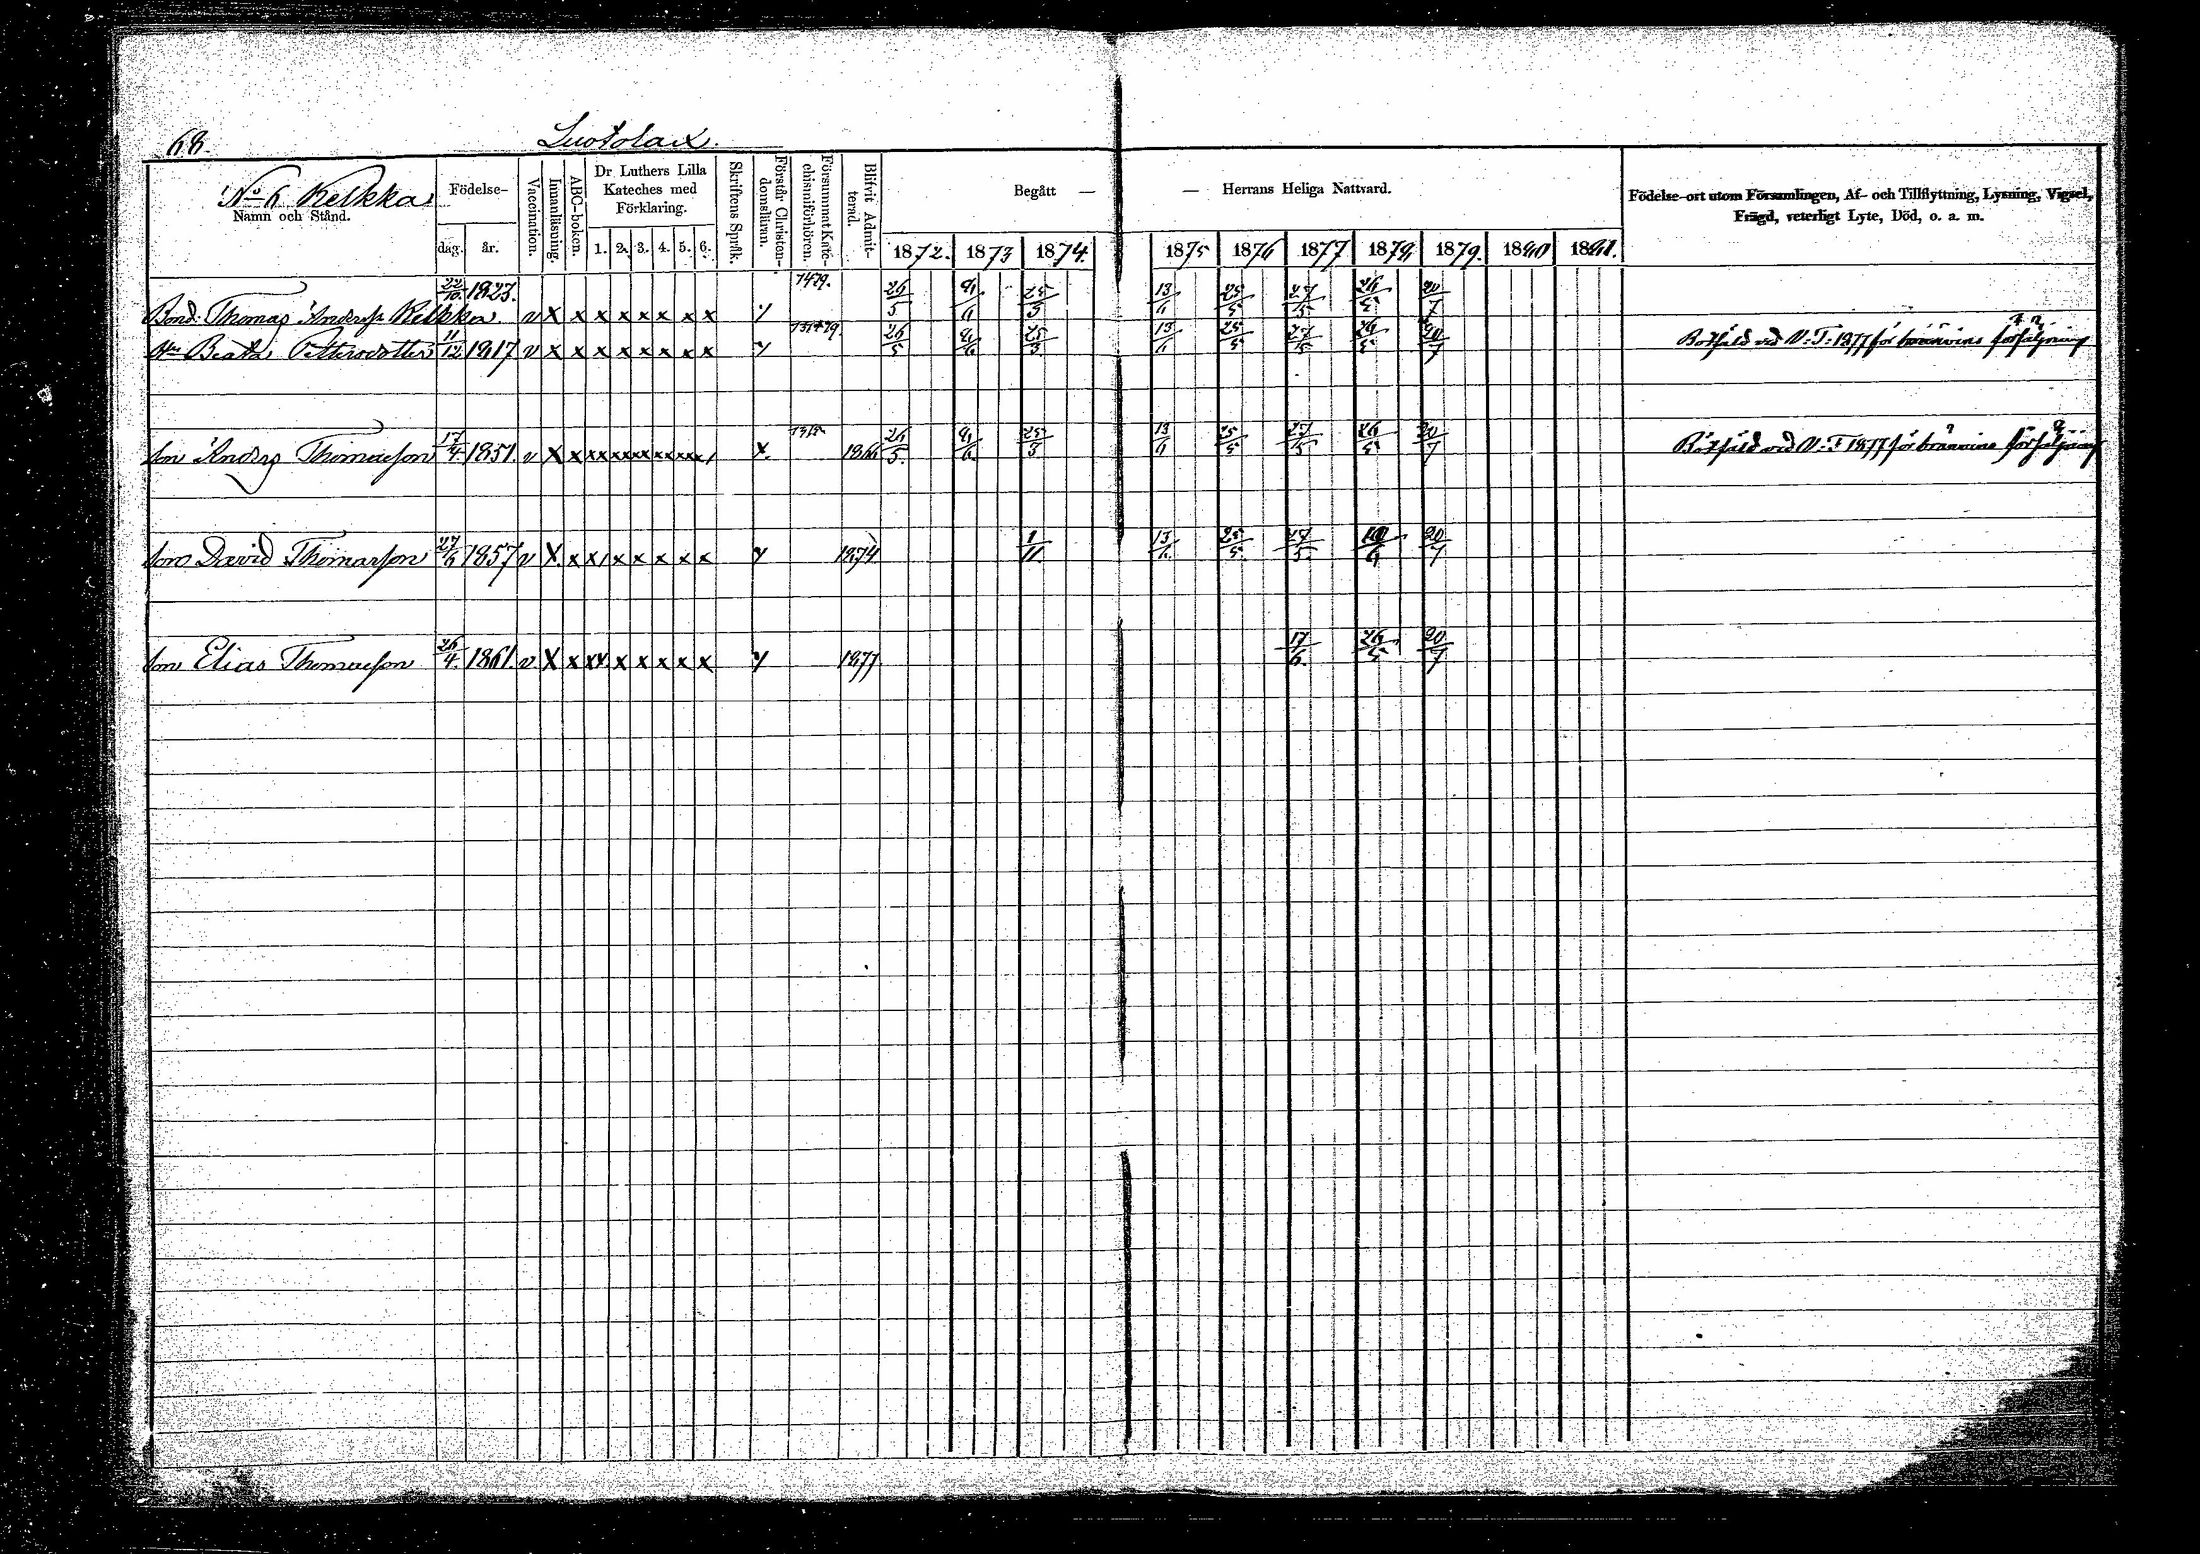 68.
Luotolax.
No 6 Kelkka
Namn och Stånd.
Födelse-
dag.
år.
Vaccination.
Innanläsning.
ABC-boken.
Dr Luthers Lilla
Kateches med
Förklaring.
1. 2. 3. 4. 5. 6.
Skriftens Språk.
Förstår Christen-
domsläran.
Försummat Kate-
chismiförhören.
Blifvit Admit-
terad.
Begått — — Herrans Heliga Nattvard.
1872. 1873 1874. 1875 1876 1877 1878 1879. 1880 1881.
Födelse-ort utom Församlingen, Af- och Tillflyttning, Lysning, Vigsel,
Frägd, veterligt Lyte, Död, o. a. m.
Bond. Thomas Anderss. Kelkka. 22/10. 1823. v x x x x x x x x 26/5 25/5 13/6 25/5 27/5 26/5 20/7
Beata Pettersdotter 11/12 1817 v x x x x x x x x 26/5 25/5 13/6 25/5 27/5 26/5 20/7 Botfäld vid V. T. 1877 för bränvins försäljning
son Anders Thomasson 17/4 1851. v x x 1866 26/5. 25/5 13/6 25/5 27/5 26/5 20/7 Botfäld vid V. T 1877 för bränvins försäljning
son David Thomasson 27/6 1857 v x x x x x x x x 1874 1/11. 13/6. 25/5. 27/5 20/7
son Elias Thomasson 26/4. 1861. v x x x x x x x x 1877 17/6. 26/5 20/7